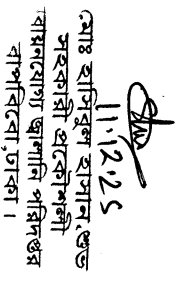 11.12.25
মোঃ হাসিবুল হাসান, শুভ
সহকারী প্রকৌশলী
বায়নযোগ্য জ্বালানি পরিদপ্তর
বাপবিবো, ঢাকা।